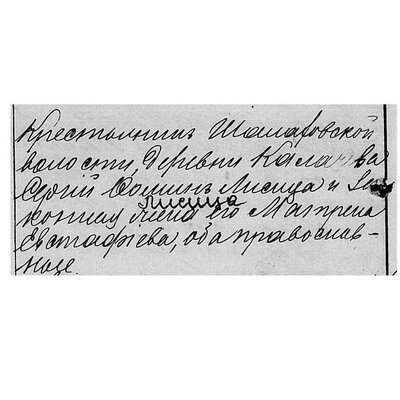 Крестьянинъ Шаматовской
волости, деревни
Сергій Ѳоминъ Лисица и за-
конная жена его Матрена
Лисица
Евстафіева, оба православ-
ные.